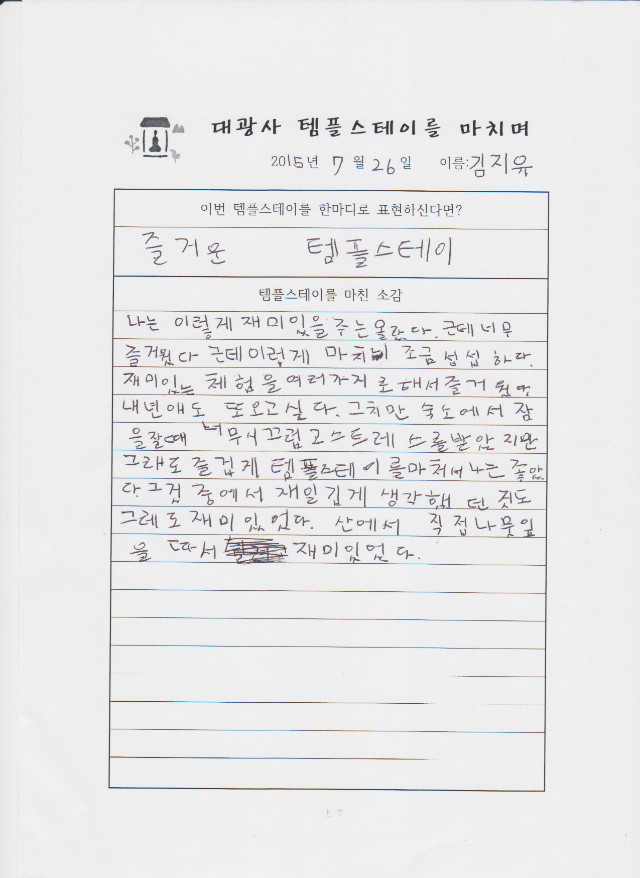 대광사 템플스테이를 마치며
2015년 7월 26일 이름:김지유
이번 템플스테이를 한마디로 표현하신다면?
즐거운 템플스테이
템플스테이를 마친 소감
나는 이렇게 재미있을 주는 몰랐다. 근데 너무
즐거웠다 근데 이렇게 마치니 조금 섭섭 하다.
재미있는 체험을 여러가지로 해서 즐거웠고
내년애도 또 오고 싶다. 그치만 숙소에서 잠
을 잘때 너무 시끄럽고 스트레스를 받았지만
그래도 즐겁게 템플스테이를 마쳐서 나는 좋았
다. 그것 중에서 재일 깁게 생각했던 것도
그레도 재미있었다. 산에서 직접 나뭇잎
을 따서 재미있었다.